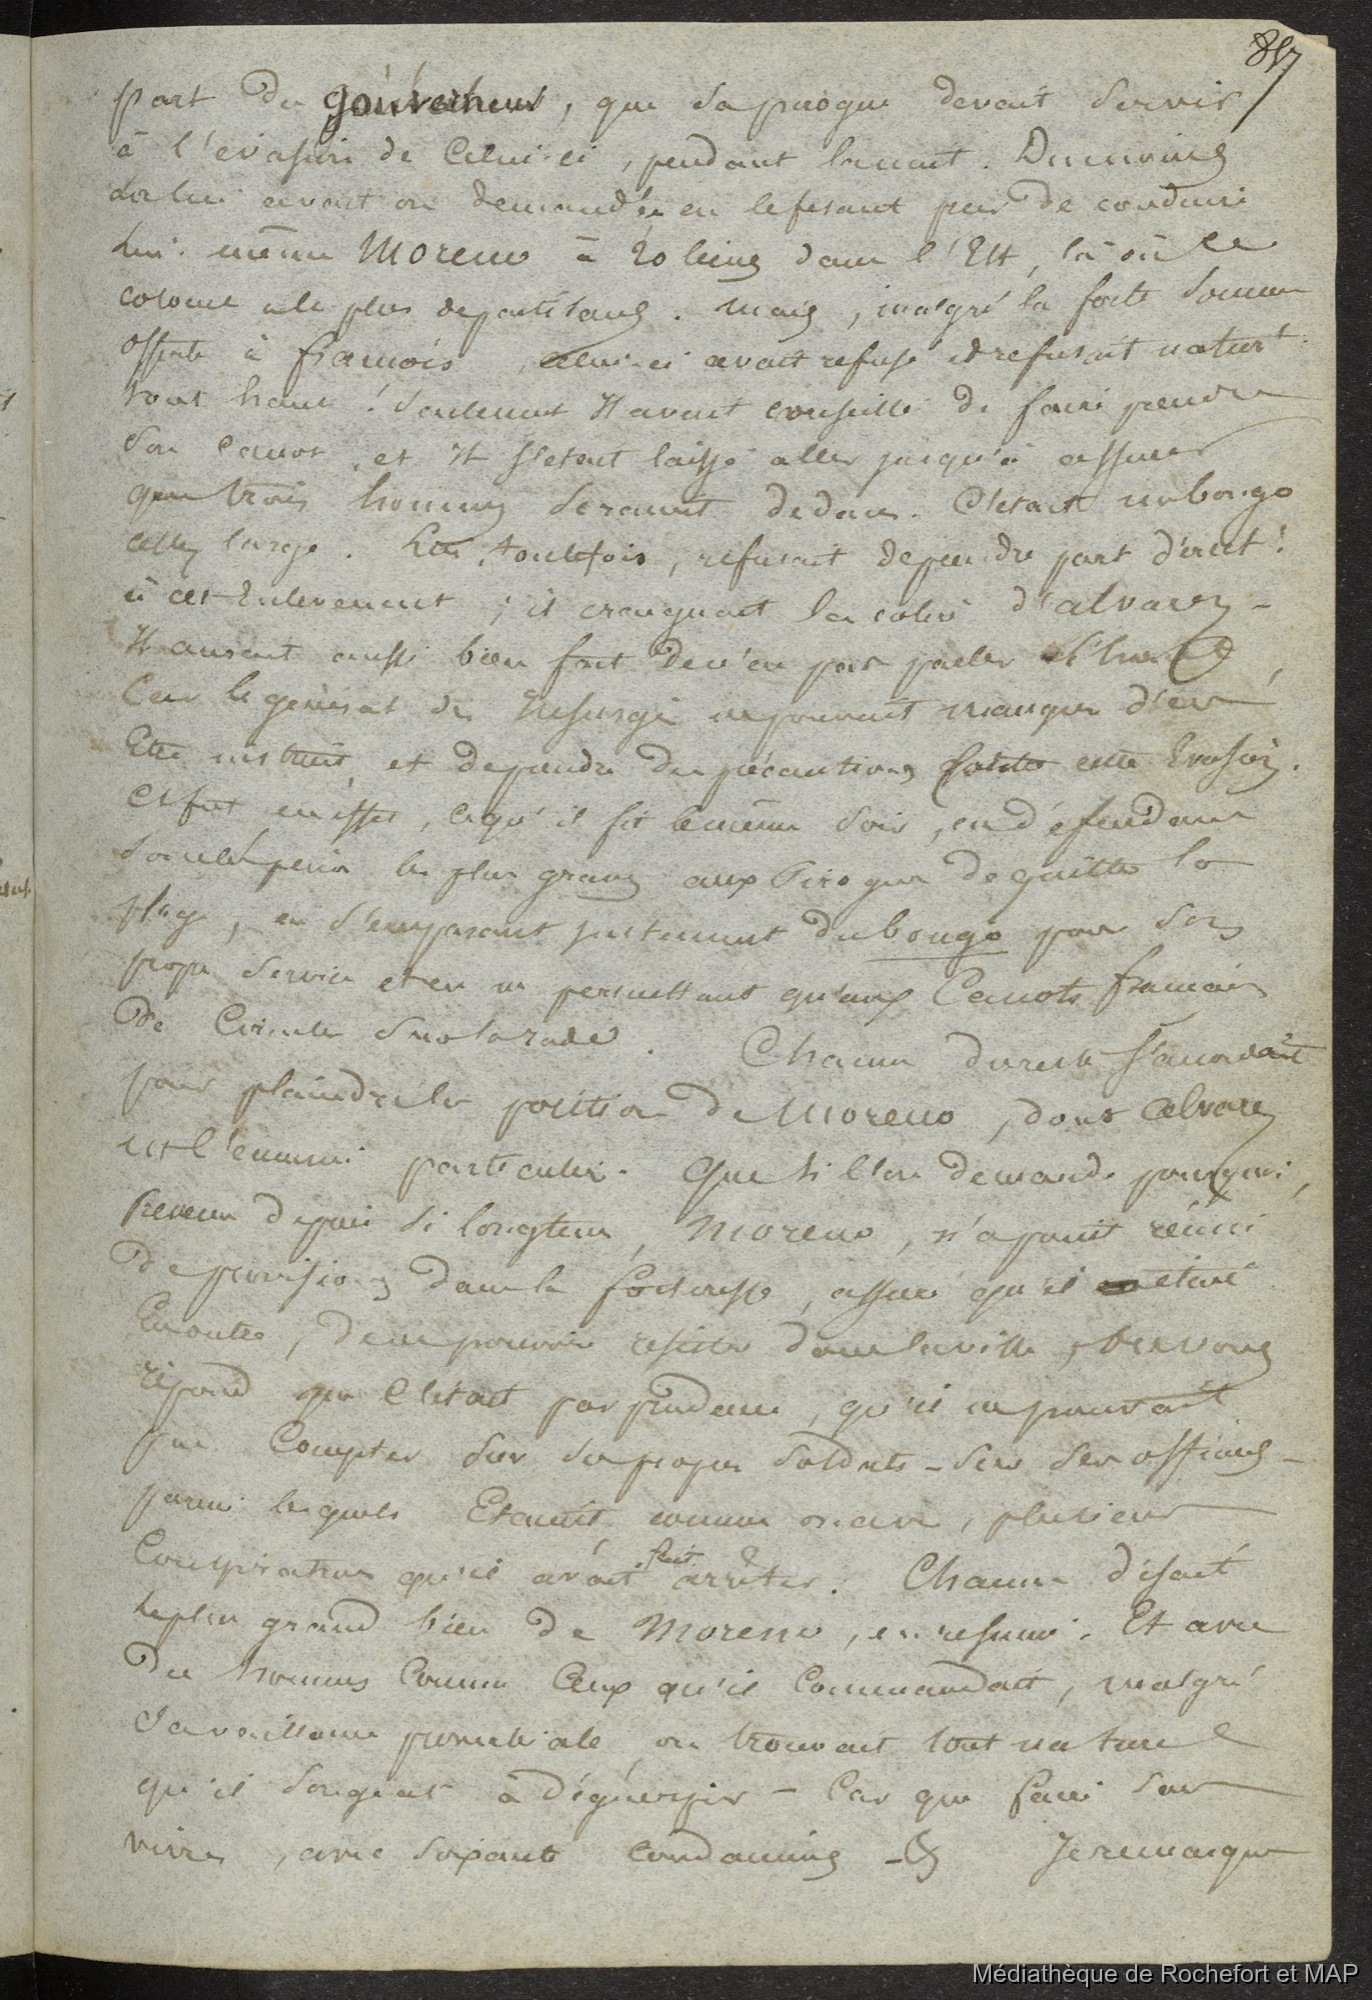 857
part du gouverneur, que sa pirogue devait servir
à l'évasion de celui-ci, pendant la nuit. Du moins
la lui avait on demandée en le pressant de conduire
lui-même Moreno à dans l'Est, là où le
colonel a le plus de partisans. Mais, malgré la forte somme
offerte à français, celui-ci avait refusé et refusait naturt
tout haut! Seulement il avait conseillé de faire prendre
son canot, et il s'était laissé aller jusqu'à assurer
que trois hommes seraient dedans. C'était un bongo
assez large. Lui, toutefois, refusait de prendre part direct!
à cet enlèvement; il craignait la colère d'alvarez -
Il aurait aussi bien fait de n'en pas parler
Car le général des Insurgés ne pouvait manquer d'en
Etre instruit, et de prendre des précautions contre cette Evasion.
Ce fut en effet, ce qu'il fit le même soir, en défendant
sous les peines les plus graves aux Pirogues de quitter la
plage, en s'emparant justement du bongo pour son
propre service et en ne permettant qu'aux Canots français
de Circuler sur la rade. Chacun du reste s'accordait
pour plaindre la position de Moreno, dont Alvarez
est l'ennemi particulier. Que si l'on demande pourquoi,
prévenu depuis si longtems, Moreno, n'a point réuni
de provisions dans la forteresse, assuré qu'il était
En outre, de ne pouvoir résister dans la ville, on vous
répond que C'était par prudence, qu'il ne pouvait
pas Compter sur ses propres soldats - sur ses officiers -
parmi lesquels Etaient comme on a vu, plusieurs
Conspirateurs qu'il avait fait arrêter. Chacun disait
le plus grand bien de Moreno, en résumé. Et avec
des hommes Comme Ceux qu'il Commandait, malgré
sa vaillance proverbiale on trouvait tout naturel
qu'il songeat à déguerpir - Car que faire sans
vivres, avec soixante condamnés - Je remarque
Médiathèque de Rochefort et MAP